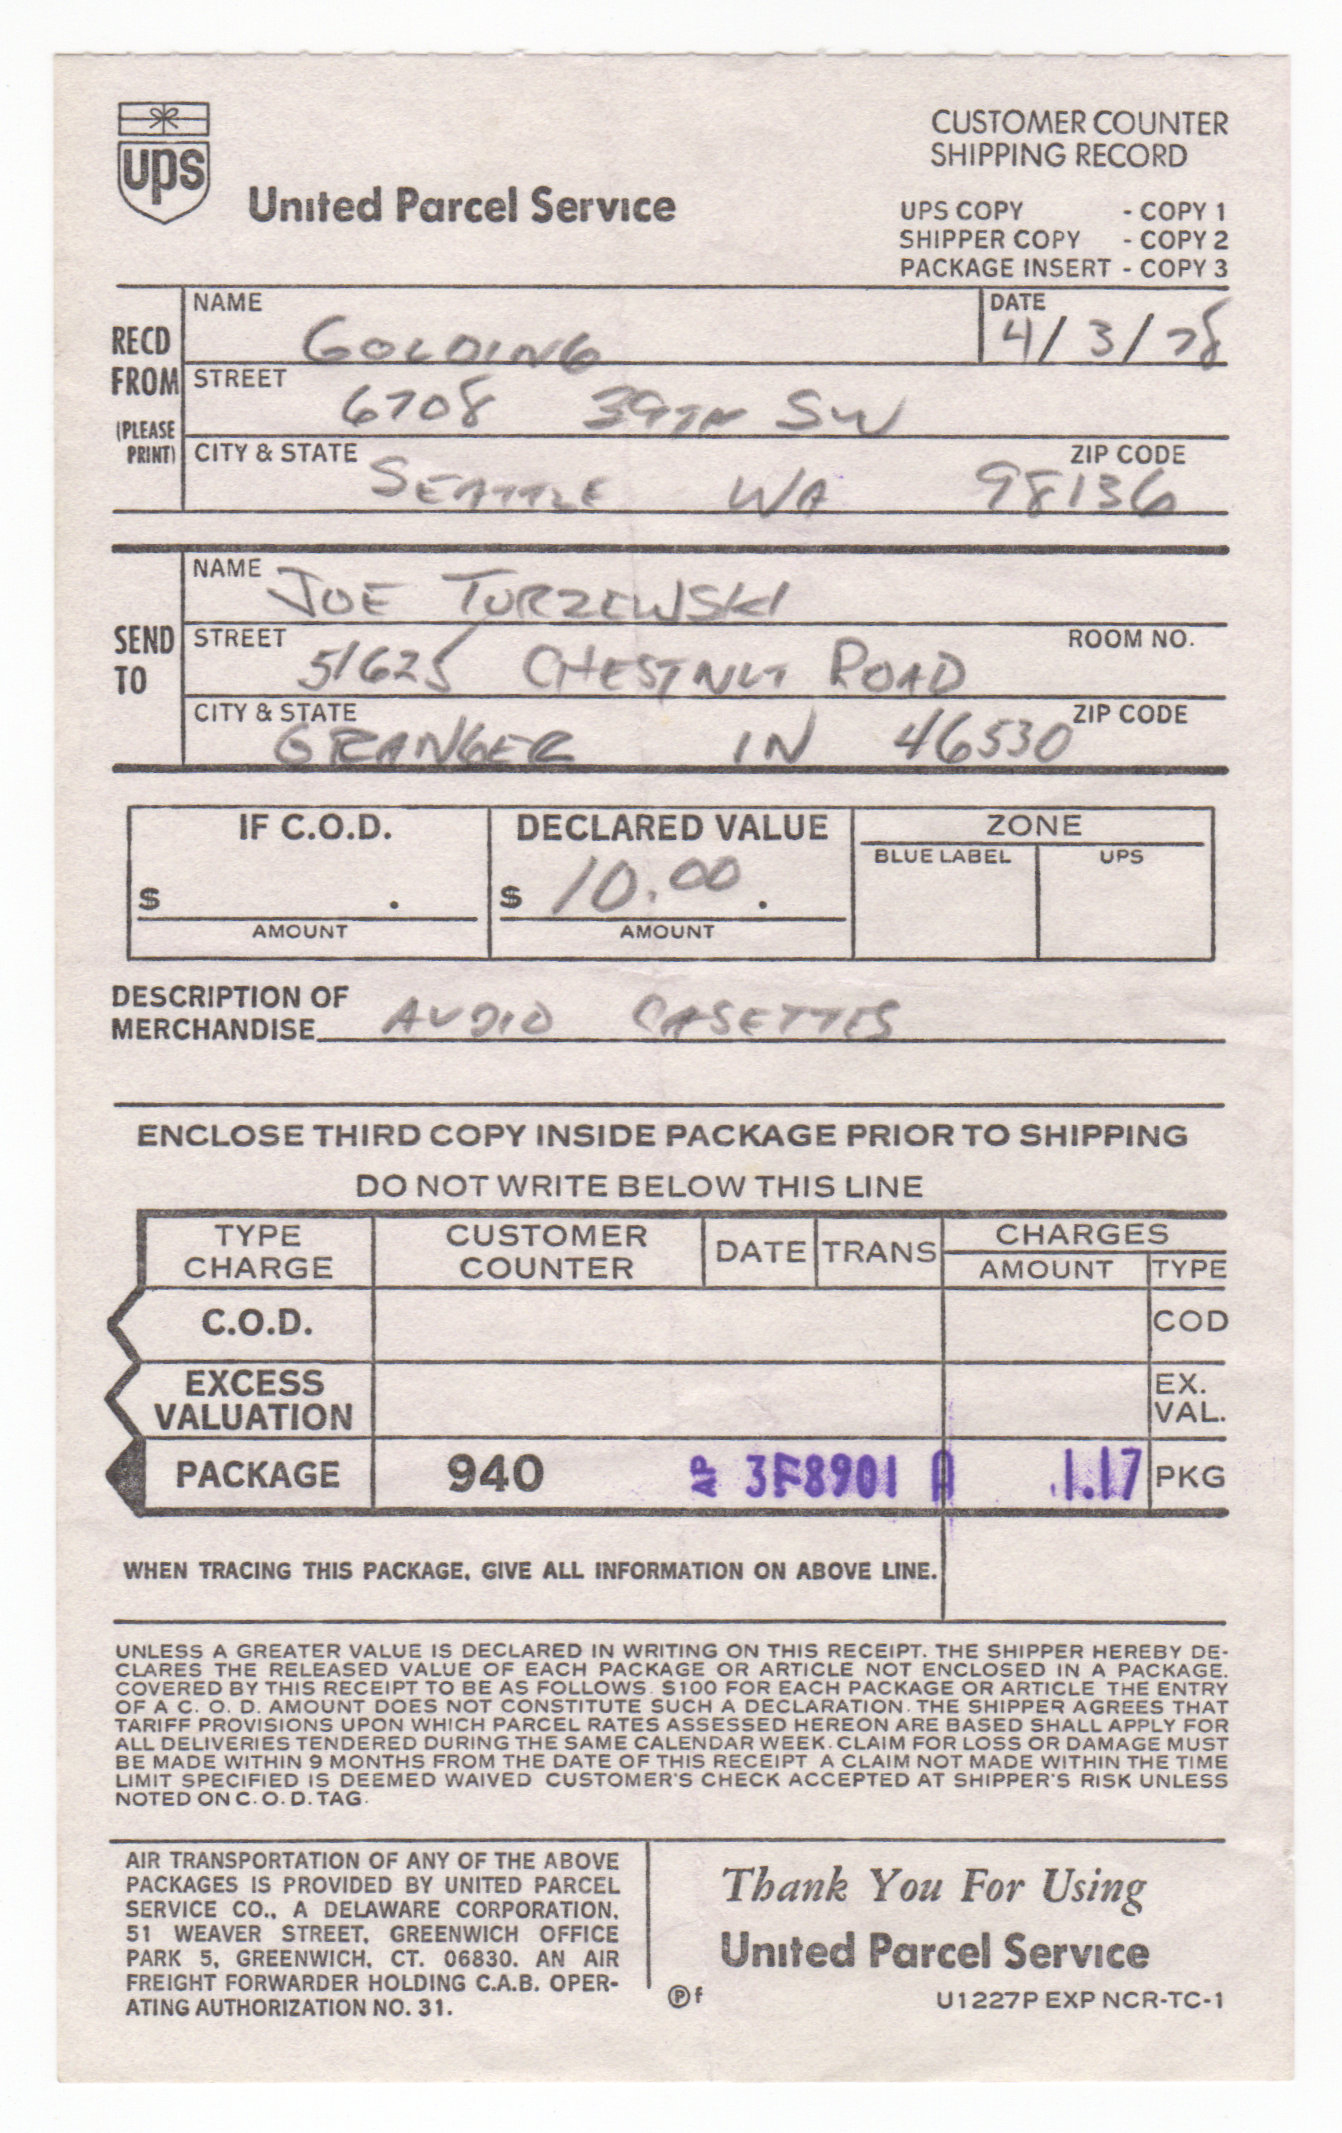 ups
United Parcel Service
CUSTOMER COUNTER
SHIPPING RECORD
UPS COPY - COPY 1
SHIPPER COPY - COPY 2
PACKAGE INSERT - COPY 3
RECD
FROM
(PLEASE
PRINT)
NAME
GOLDING
DATE
4/3/78
STREET
6708 39TH SW
CITY & STATE
SEATTLE WA
ZIP CODE
98136
SEND
TO
NAME
JOE TURZEWSKI
STREET
51625 CHESTNUT ROAD
ROOM NO.
CITY & STATE
GRANGER IN
ZIP CODE
46530
IF C.O.D.
$ .
AMOUNT
DECLARED VALUE
$ 10.00 .
AMOUNT
ZONE
BLUE LABEL UPS
DESCRIPTION OF
MERCHANDISE AUDIO CASETTES
ENCLOSE THIRD COPY INSIDE PACKAGE PRIOR TO SHIPPING
DO NOT WRITE BELOW THIS LINE
TYPE
CHARGE
CUSTOMER
COUNTER
DATE TRANS
CHARGES
AMOUNT TYPE
C.O.D. COD
EXCESS
VALUATION
EX.
VAL.
PACKAGE 940 AP 3F8901 A 1.17 PKG
WHEN TRACING THIS PACKAGE, GIVE ALL INFORMATION ON ABOVE LINE.
UNLESS A GREATER VALUE IS DECLARED IN WRITING ON THIS RECEIPT. THE SHIPPER HEREBY DE-
CLARES THE RELEASED VALUE OF EACH PACKAGE OR ARTICLE NOT ENCLOSED IN A PACKAGE.
COVERED BY THIS RECEIPT TO BE AS FOLLOWS. $100 FOR EACH PACKAGE OR ARTICLE THE ENTRY
OF A C. O. D. AMOUNT DOES NOT CONSTITUTE SUCH A DECLARATION. THE SHIPPER AGREES THAT
TARIFF PROVISIONS UPON WHICH PARCEL RATES ASSESSED HEREON ARE BASED SHALL APPLY FOR
ALL DELIVERIES TENDERED DURING THE SAME CALENDAR WEEK. CLAIM FOR LOSS OR DAMAGE MUST
BE MADE WITHIN 9 MONTHS FROM THE DATE OF THIS RECEIPT A CLAIM NOT MADE WITHIN THE TIME
LIMIT SPECIFIED IS DEEMED WAIVED CUSTOMER'S CHECK ACCEPTED AT SHIPPER'S RISK UNLESS
NOTED ON C. O. D. TAG.
AIR TRANSPORTATION OF ANY OF THE ABOVE
PACKAGES IS PROVIDED BY UNITED PARCEL
SERVICE CO., A DELAWARE CORPORATION,
51 WEAVER STREET, GREENWICH OFFICE
PARK 5, GREENWICH, CT. 06830. AN AIR
FREIGHT FORWARDER HOLDING C.A.B. OPER-
ATING AUTHORIZATION NO. 31.
Thank You For Using
United Parcel Service
Ⓟf
U1227P EXP NCR-TC-1